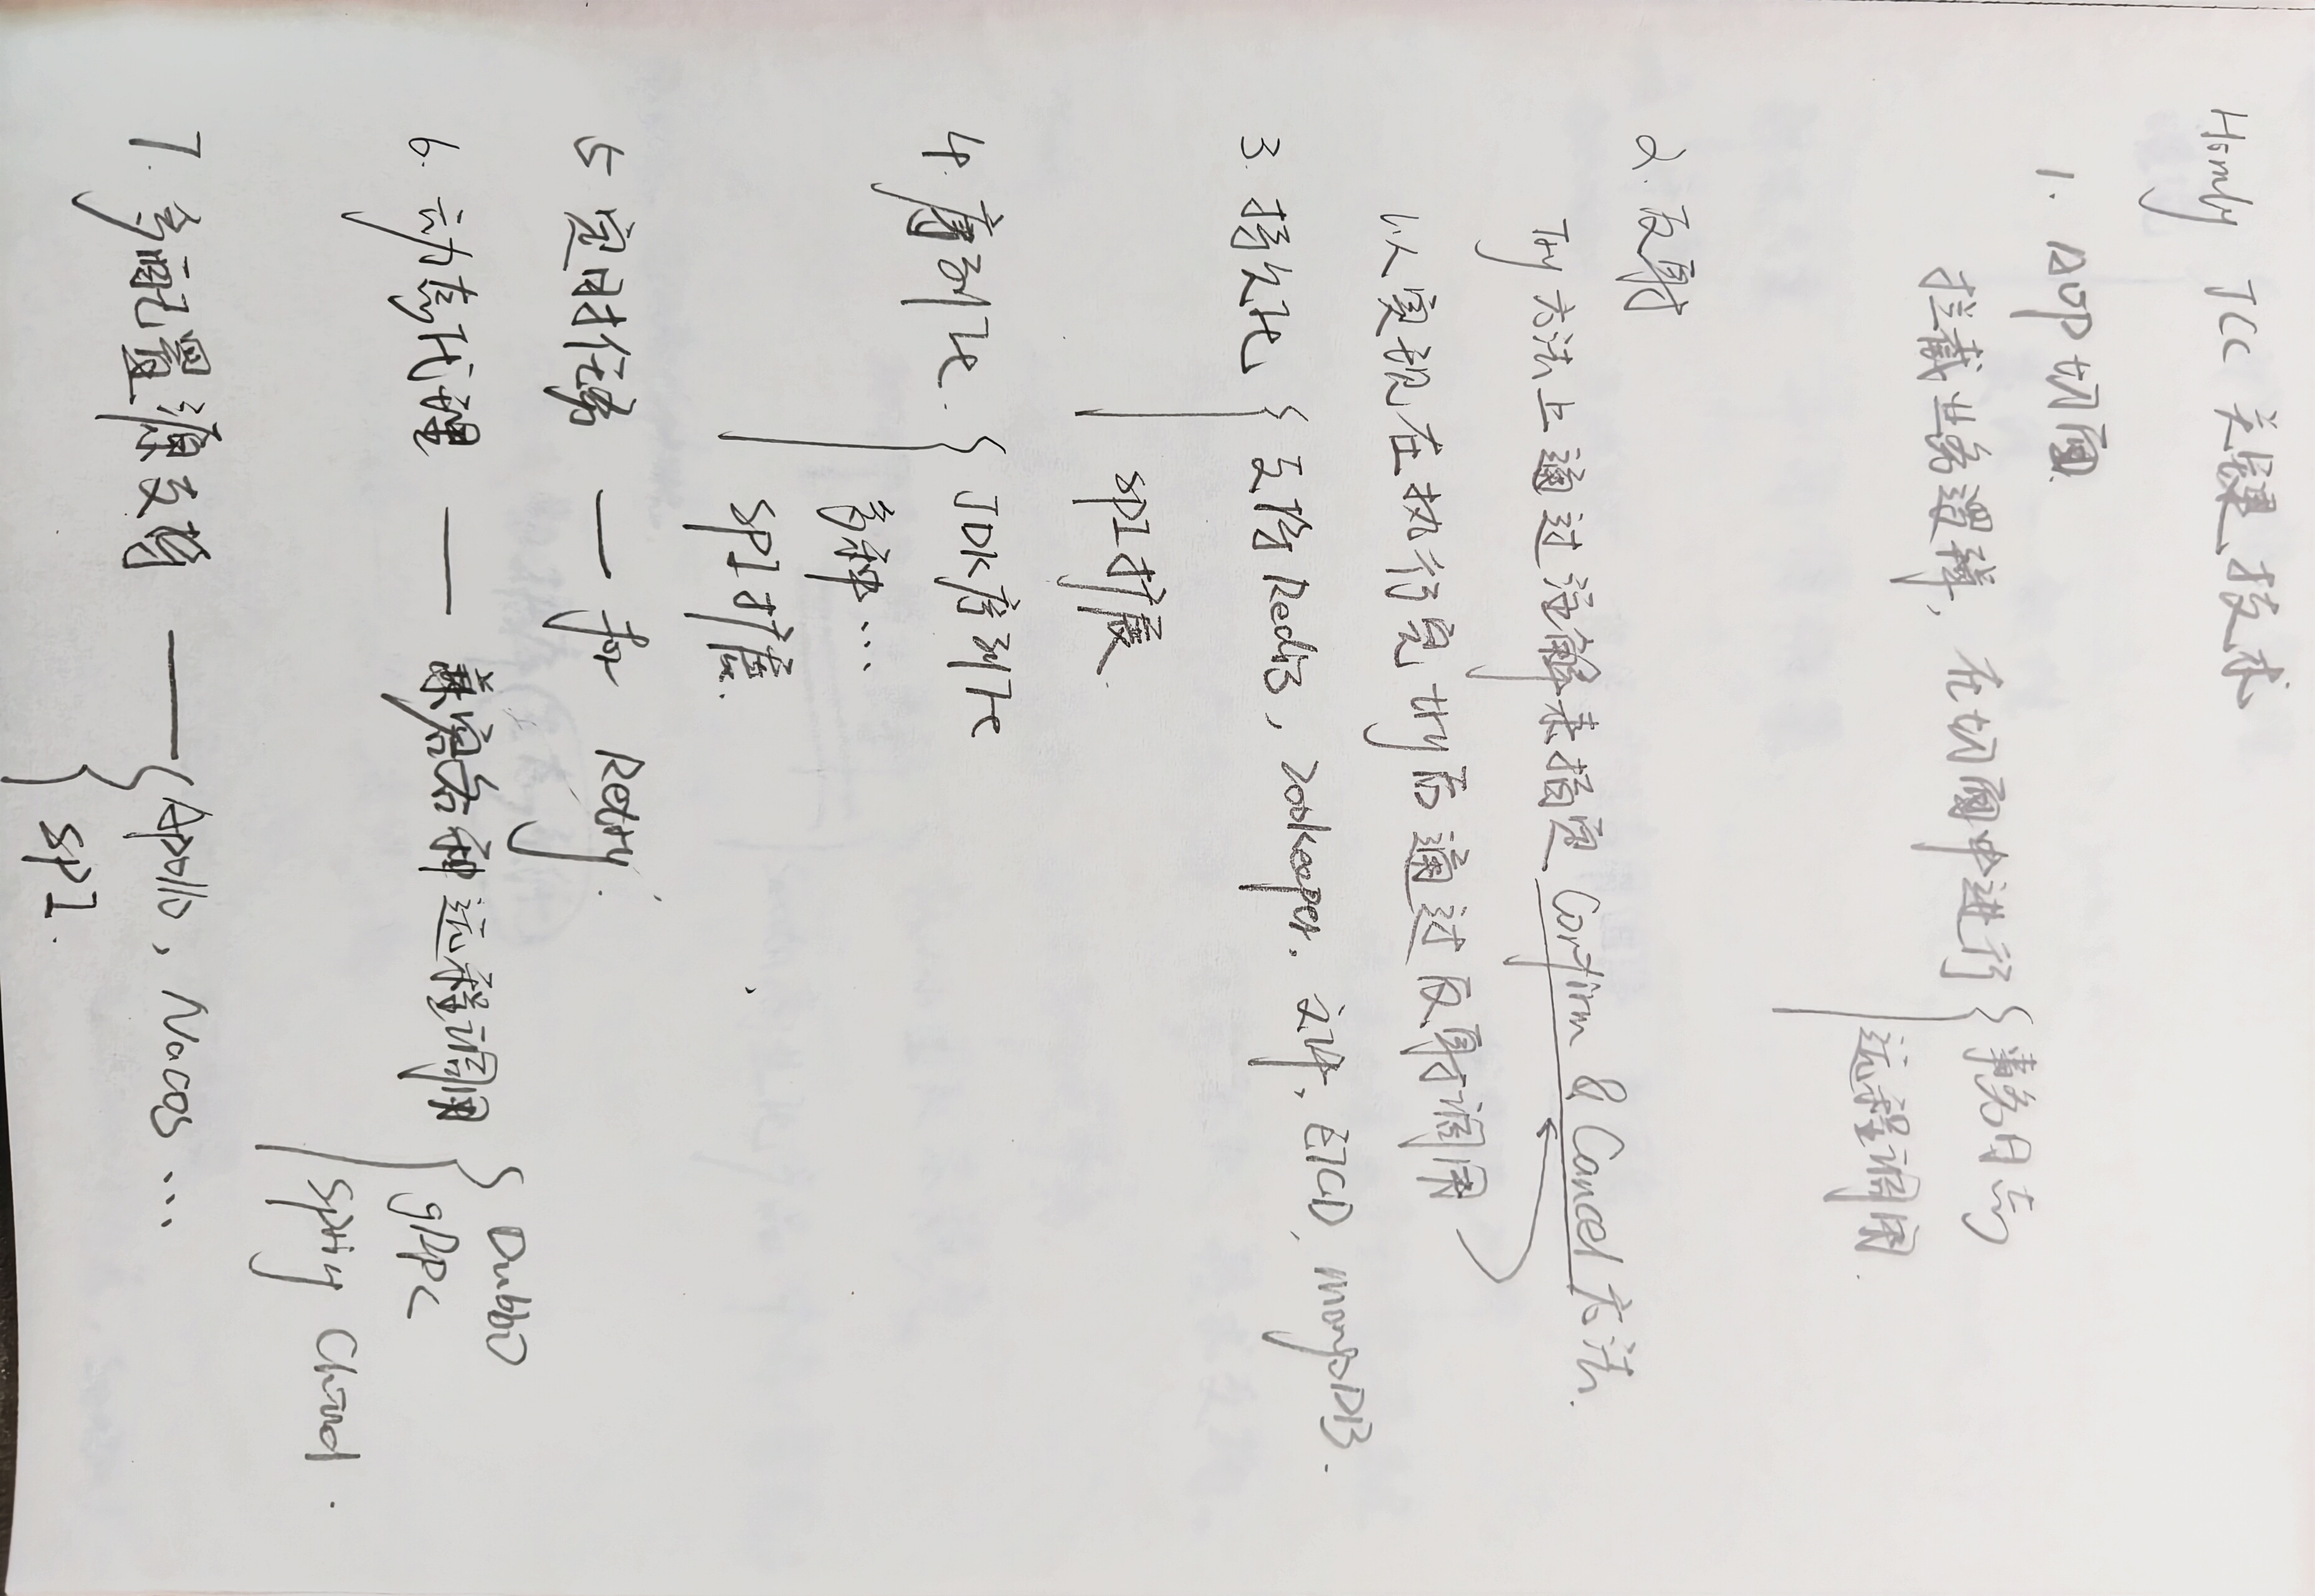 Hmily TCC 关键技术
1. AOP切面.
拦截业务逻辑, 在切面中进行
事务日志
远程调用.
2. 反射
Try方法上通过注解来指定 Confirm & Cancel方法.
以实现在执行完try后通过反射调用
3. 持久化
支持Redis, zookeeper, 文件, ETCD, mongoDB.
SPI扩展.
4. 序列化.
JDK序列化
多种...
SPI扩展.
5 定时任务 — for Retry.
6. 动态代理 — 兼容各种远程调用
Dubbo
gRPC
Spring Cloud.
7. 多配置源支持 —
Apollo, Nacos ...
SPI.